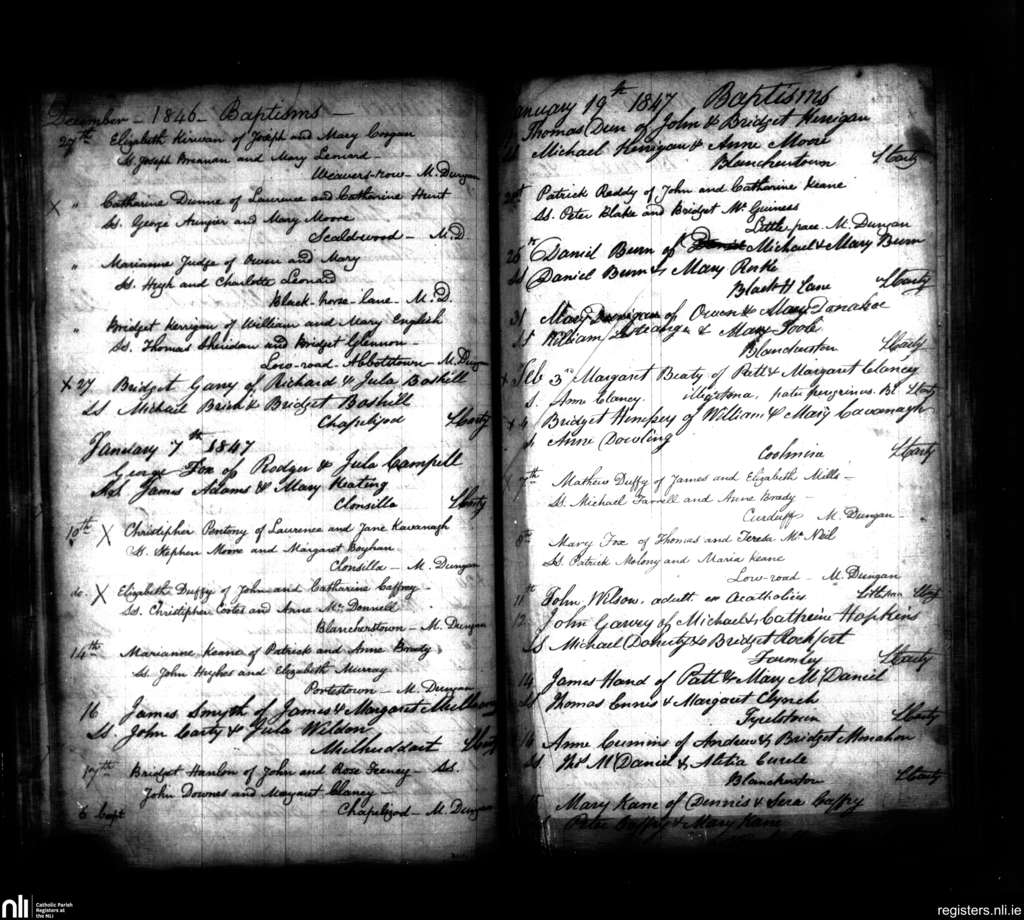 December - 1846 - Baptisms -
27th Elizabeth Kirwan of Joseph and Mary Coogan
Ss. Joseph Brennan and Mary Leonard -
Weavers-row - M. Dungan
X " Catharine Dunne of Laurence and Catharine Hunt
Ss. George Aungier and Mary Moore
Scaldwood - M.D.
" Marianne Judge of Owen and Mary
Ss. Hugh and Charlotte Leonard
Black-horse-lane - M.D.
" Bridget Kerrigan of William and Mary English
Ss. Thomas Sheridan and Bridget Glennon -
Low-road - Abbotstown - M. Dungan
X 27 Bridget Garry of Richard & Jula Boshill
Ss Michael Brien & Bridget Boshill
Chapelizod
January 7th 1847
George Fox of Rodger & Jula Campell
Ss James Adams & Mary Keating
Clonsilla
10th X Christipher Pentony of Laurence and Jane Kavanagh
Ss. Stephen Moore and Margaret Boyhan
Clonsilla - M. Dungan
do. X Elizabeth Duffy of John and Catharine Caffrey -
Ss. Christipher Cootes and Anne Mc Donnell
Blancherstown - M. Dungan
14th Marianne Keane of Patrick and Anne Brady
Ss. John Hughes and Elizabeth Murray
Porterstown - M. Dungan
16 James Smyth of James & Margaret
Ss. John Carty & Jula Wildon
Mulhuddart
17th Bridget Hanlon of John and Rose Feeney - Ss.
John Downes and Margaret Clancy -
Chapelizod - M. Dungan
6 Bapt
January 19th 1847 Baptisms
Thomas Dun of John & Bridget Henigan
Ss Michael Henigan & Anne Moore
Blanchertown
Patrick Reddy of John and Catharine Keane
Ss. Peter Blake and Bridget Mc Guiness
Little pace M. Dungan
Daniel Burn of Michael & Mary Burn
Ss Daniel Burn & Mary Rorke
Black H Lane
31 Mary of Owen & Mary Donahoe
Ss William & Mary Toole
Blanchertown
X Feb 3rd Margaret Beaty of Patt & Margaret Clancy
S. Anne Clancy. illegitima, pater peregrinus. Bl
X 4 Bridget Hempsey of William & Mary Cavanagh
S Anne Dowling
Coolmine
7th Mathew Duffy of James and Elizabeth Mills -
Ss. Michael Farrell and Anne Brady -
Curduff M. Dungan -
8th Mary Fox of Thomas and Teresa Mc Neil
Ss Patrick Molony and Maria Keane
Low-road - M. Dungan
11th John Wilson, adult ex Acatholics
12 John Garvey of Michael & Cathreine Hopkins
Ss Michael Doherty & Bridget Rockfort
Farmley
14 James Hand of Patt & Mary Mc Daniel
Ss Thomas Ennis & Margaret Clynch
Tyrelstown
14 Anne Cumins of Andrew & Bridget Monahon
Ss Thos Mc Daniel & Alitia
Blanchertown
15 Mary Kane of Dennis & Sera Caffry
Peter Caffry & Mary Kane
nli
Catholic Parish
Registers at
the NLI
registers.nli.ie